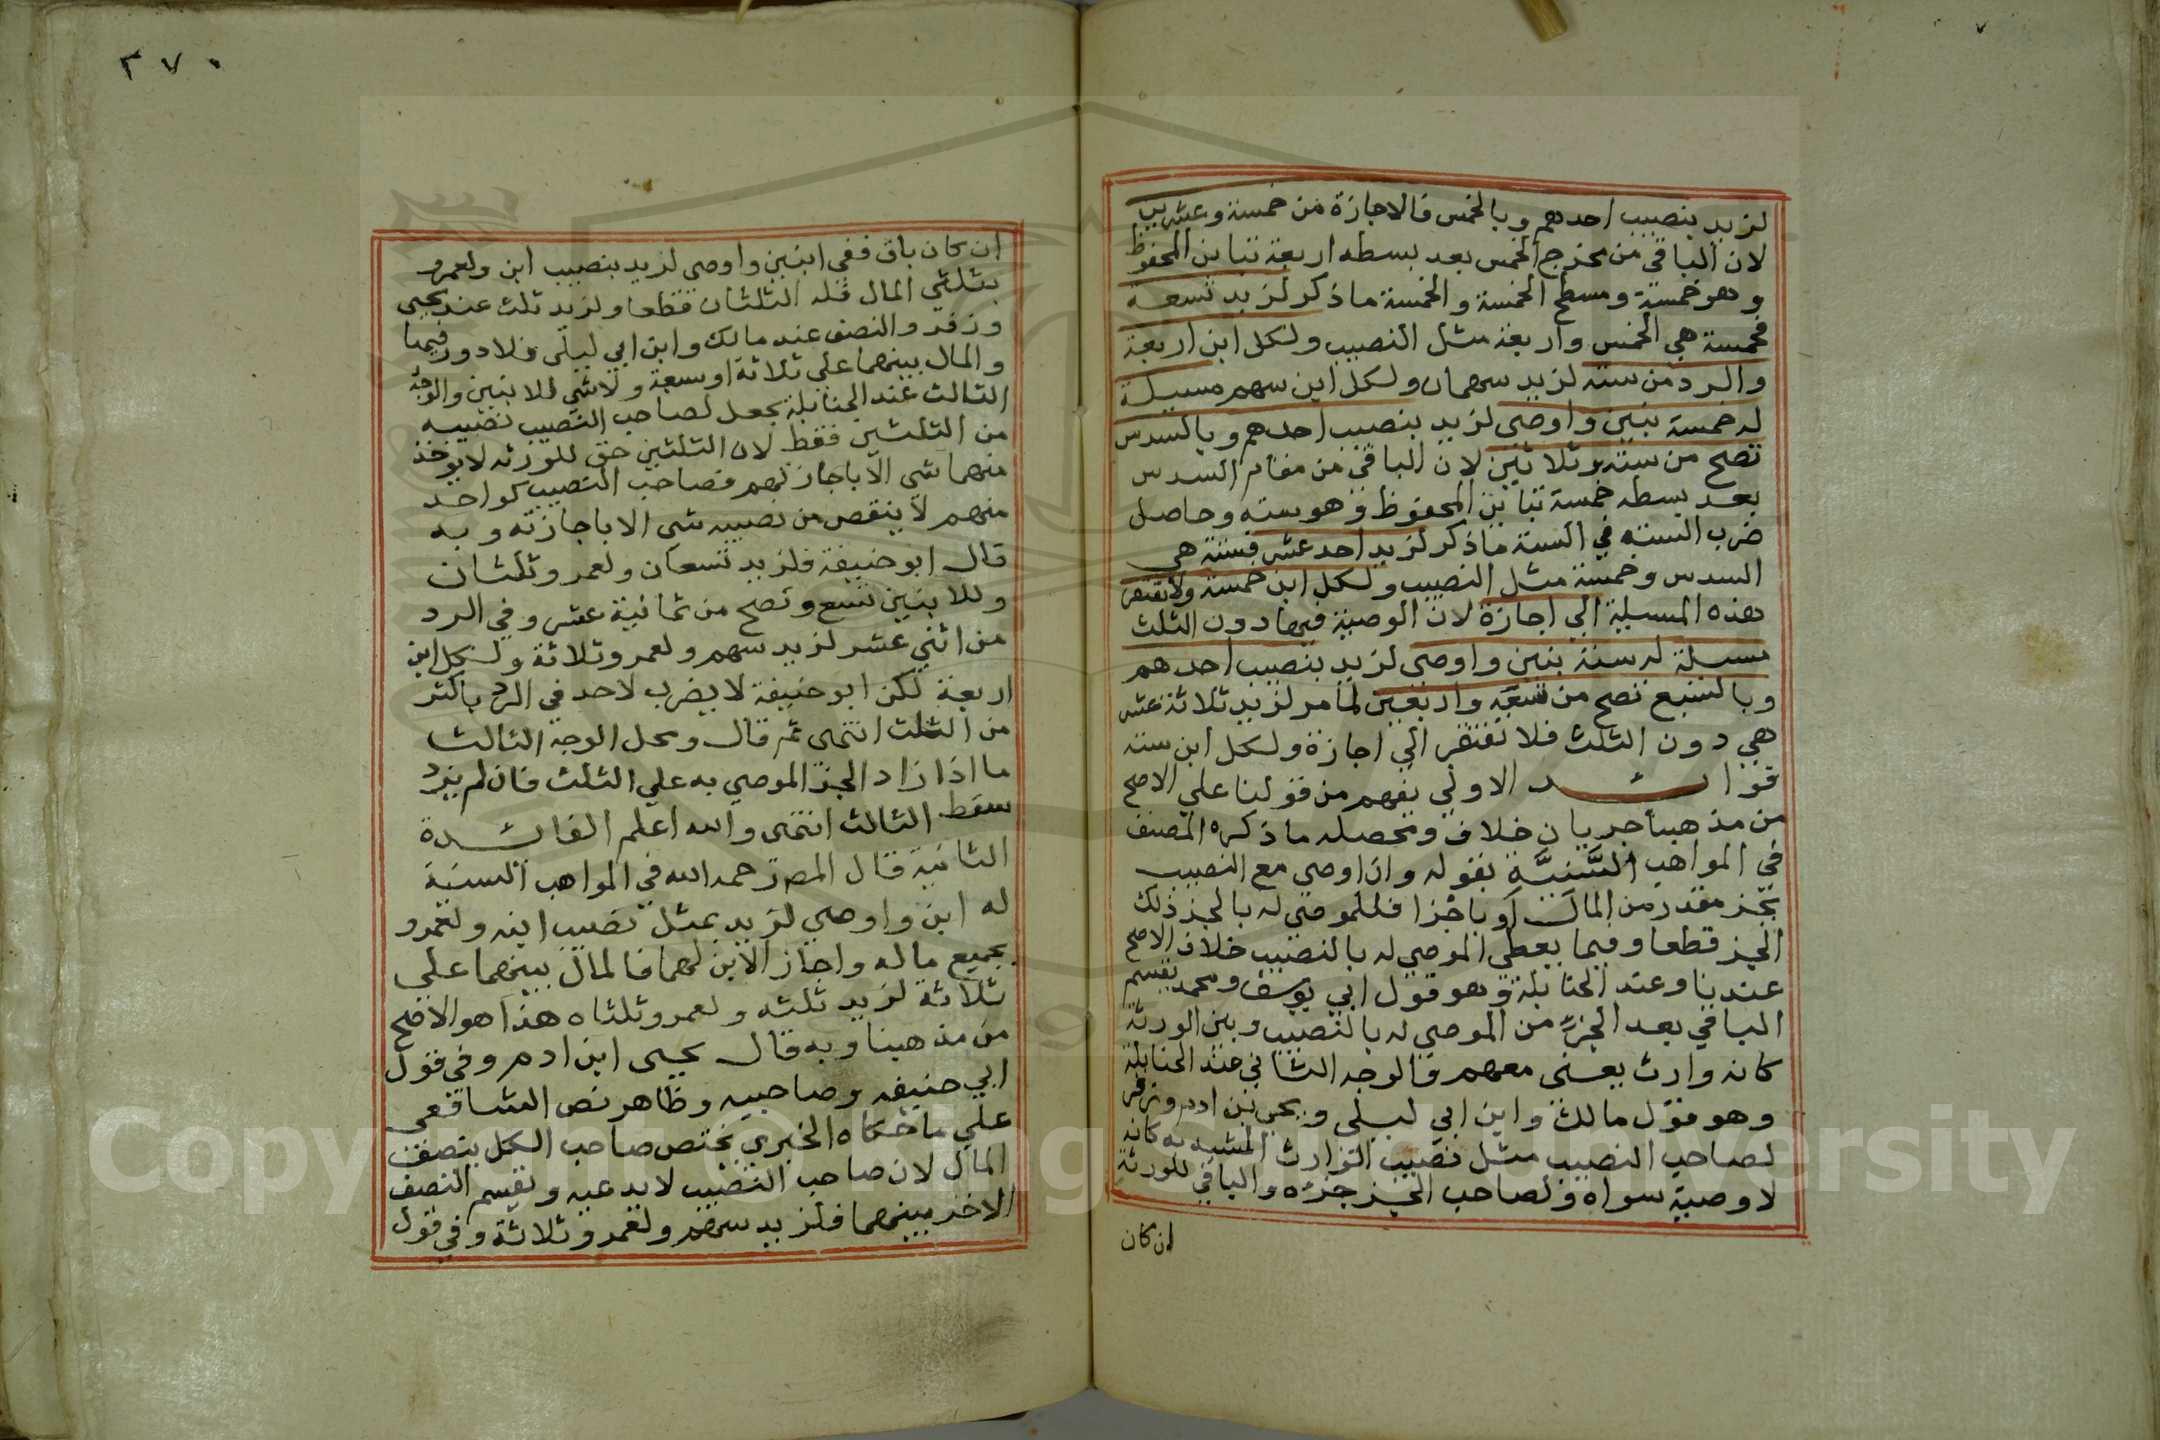 لزيد بنصيب احدهم وبالخمس فالاجازة من خمسة وعشرين
لان الباقي من مخرج الخمس بعد بسطه اربعة تباين المحفوظ
وهو خمسة ومسطح الخمسة والخمسة ما ذكر لزيد تسعة
فخمسة هي الخمس واربعة مثل النصيب ولكل ابن اربعة
والرد من ستة لزيد سهمان ولكل ابن سهم مسيلة
له خمسة بنين واوصى لزيد بنصيب احدهم وبالسدس
تصح من ستة وثلاثين لان الباقي من مقام السدس
بعد بسطه خمسة تباين المحفوظ وهو ستة وحاصل
ضرب الستة في الستة ما ذكر لزيد احد عشر فستة هي
السدس وخمسة مثل النصيب ولكل ابن خمسة ولا تفتقر
هذه المسيلة الي اجازة لان الوصية فيها دون الثلث
مسيلة له ستة بنين واوصى لزيد بنصيب احدهم
وبالسبع تصح من تسعة واربعين لما مر لزيد ثلاثة عشر
هي دون الثلث فلا تفتقر الي اجازة ولكل ابن ستة
فوائد الاولي يفهم من قولنا علي الاصح
من مذهبنا جريان خلاف ومحصله ما ذكره المصنف
في المواهب السَّنِيَّةِ بقوله وان اوصي مع النصيب
بجز مقدر من المال او باجزا فللموصي له بالجز ذلك
الجز قطعا وفيما يعطي الموصي له بالنصيب خلاف الاصح
عندنا وعند الحنابلة وهو قول ابي يوسف ومحمد يقسم
الباقي بعد الجزء من الموصي له بالنصيب وبين الورثة
كانه وارث بعني معهم والوجه الثاني عند الحنابلة
وهو قول مالك وابن ابي ليلى ويحيى بن ادم وزفر
لصاحب النصيب مثل نصيب الوارث المشبه به كانه
لا وصية سواه ولصاحب الجز جزءه والباقي للورثة
ان كان
٣٧٠
ان كان باق ففي ابنين واوصي لزيد بنصيب ابن ولعمرو
بثلثي المال فله الثلثان قطعا ولزيد ثلث عند يحيى
وزفر والنصف عند مالك وابن ابي ليلى فلا دور فيهما
والمال بينهما علي ثلاثة اوسبعة ولا شي للابنين والوجه
الثالث عند الحنابلة يجعل لصاحب النصيب نصيبه
من الثلثين فقط لان الثلثين حق للورثه لا يوخذ
منهما شي الّا باجازتهم فصاحب النصيب كواحد
منهم لا ينقص من نصيبه شي الا باجازته وبه
قال ابو حنيفة فلزيد تسعان ولعمرو ثلثان
وللابنين تسع وتصح من ثمانية عشر وفي الرد
من اثني عشر لزيد سهم ولعمرو ثلاثة ولكل ابن
اربعة لكن ابو حنيفة لا يضرب لاحد في الرد باكثر
من الثلث انتهى ثم قال ومحل الوجه الثالث
ما اذا زاد الجز الموصي به علي الثلث فان لم يزد
سقط الثالث انتهى والله اعلم الفائدة
الثانية قال المص رحمه الله في المواهب السنية
له ابن واوصي لزيد بمثل نصيب ابنه ولعمرو
بجميع ماله واجاز الابن لهما فالمال بينهما علي
ثلاثة لزيد ثلثه ولعمرو ثلثاه هذا هو الاصح
من مذهبنا وبه قال يحيى ابن ادم وفي قول
ابي حنيفه وصاحبيه وظاهر نص الشافعي
علي ما حكاه الخبري يختص صاحب الكل بنصف
المال لان صاحب النصيب لا يدعيه ويقسم النصف
الاخر بينهما فلزيد سهم ولعمرو ثلاثة وفي قول